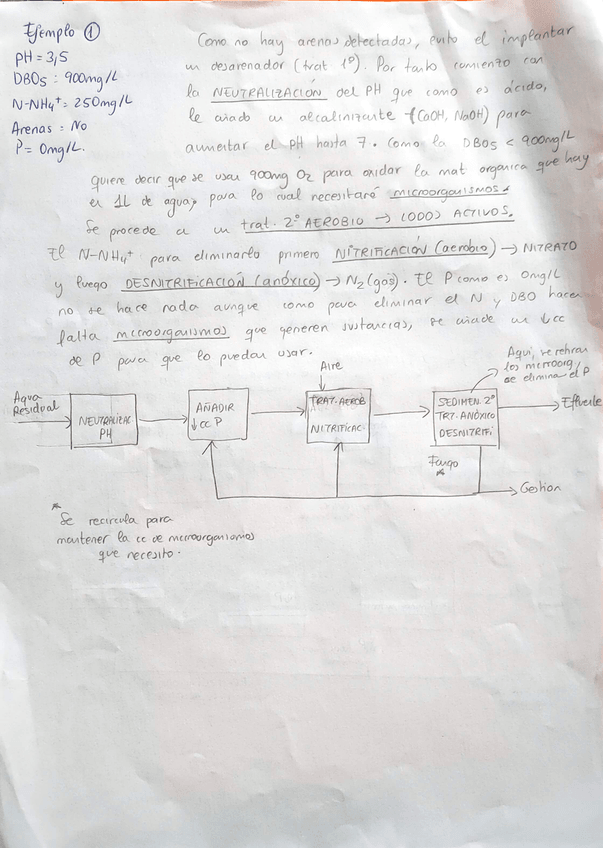 Ejemplo ①
PH = 3,5
DBO5 : 900mg/L
N-NH4+ = 250mg/L
Arenas : No
P = 0mg/L.
Como no hay arenas detectadas, evito el implantar
un desarenador (trat 1º). Por tanto comienzo con
la NEUTRALIZACIÓN del PH que como es ácido,
le añado un alcalinizante (CaOH, NaOH) para
aumentar el PH hasta 7. Como la DBO5 < 900mg/L
quiere decir que se usan 900mg O2 para oxidar la mat organica que hay
en 1L de agua, para lo cual necesitaré microorganismos.
Se procede a un trat. 2º AEROBIO → LODOS ACTIVOS.
El N-NH4+ para eliminarlo primero NITRIFICACIÓN (aerobio) → NITRATO
y luego DESNITRIFICACIÓN (anóxico) → N2 (gas). El P como es 0mg/L
no se hace nada aunque como para eliminar el N y DBO hacen
falta microorganismos que generen sustancias, se añade un ↓cc
de P para que lo puedan usar.
Aqui, se retiran
los microorg,
se elimina el P
Aire
Agua
Residual
NEUTRALIZAC
PH
AÑADIR
↓cc P
TRAT-AEROB
NITRIFICAC
SEDIMEN. 2º
TRT. ANÓXICO
DESNITRIFI
Fango
*
Gestion
* Se recircula para
mantener la cc de microorganismos
que necesito.